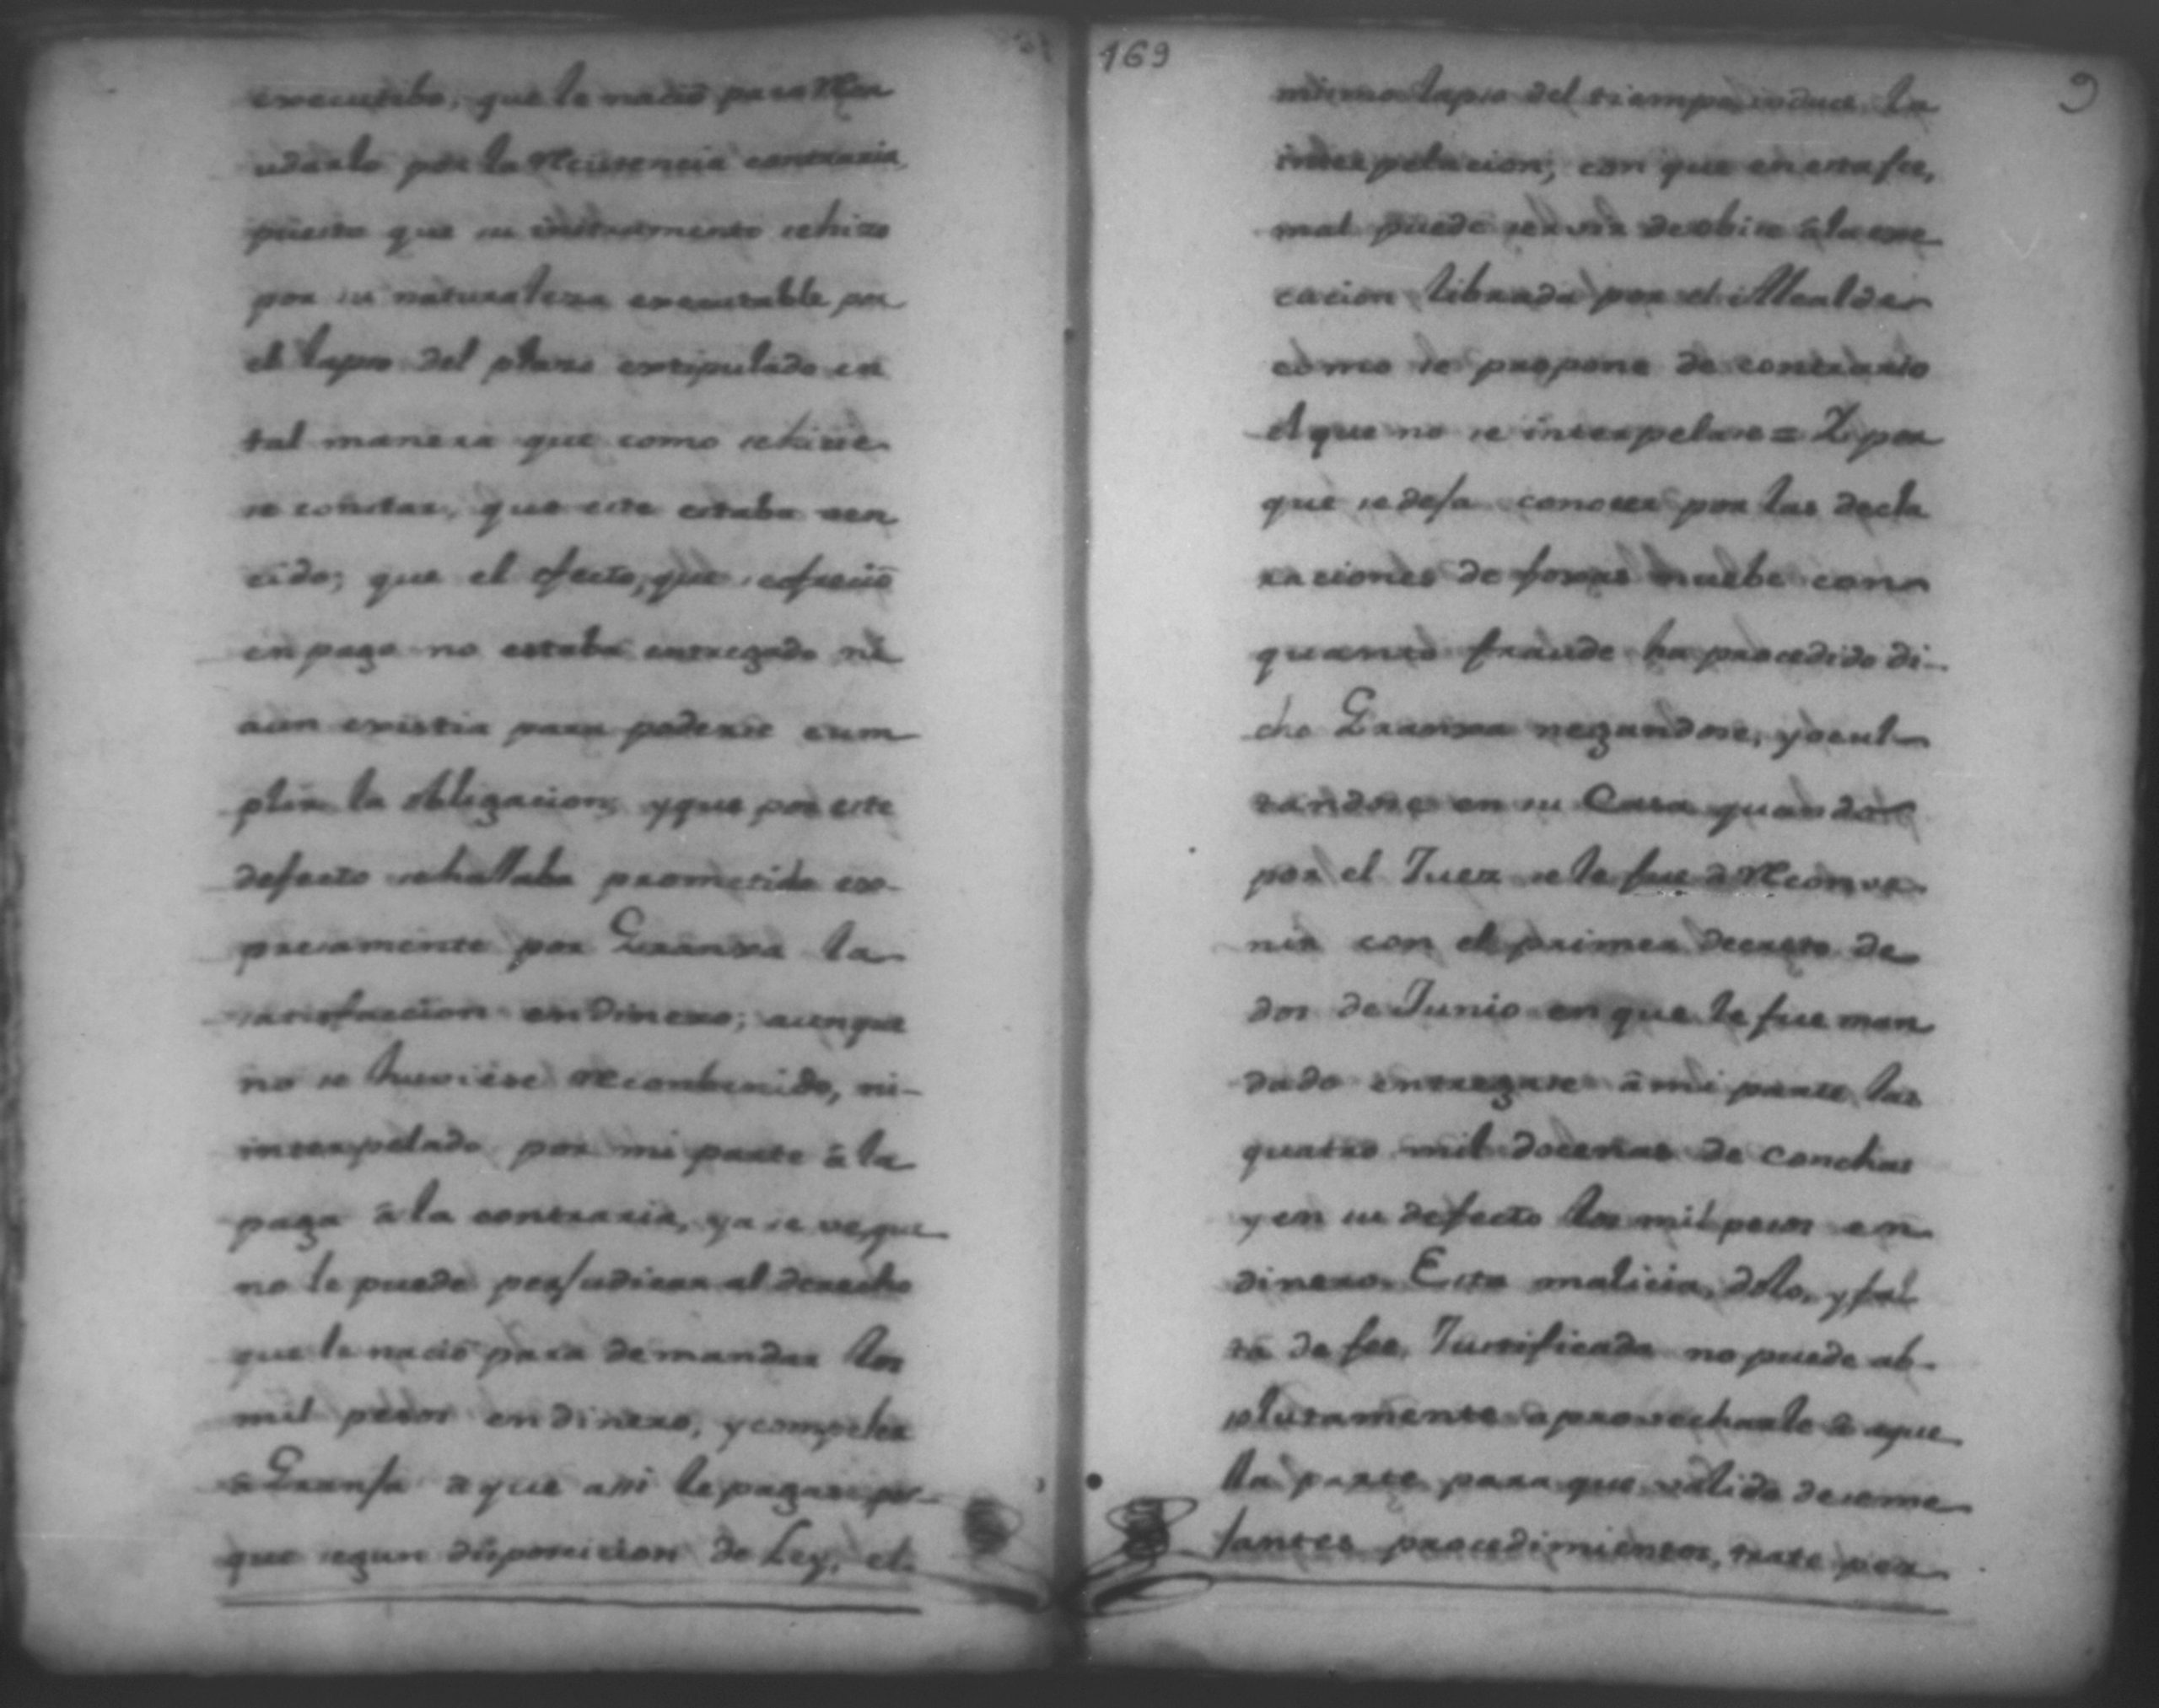 executibo, que le nació para Rec
udarlo por la Recurencia contraria,
puesto que su instrumento se hizo
por su naturaleza executable por
el lapso del plazo extipulado en
tal manera que como se hicie
se constar, que este estaba ven
cido; que el efecto, que se ofreció
en pago no estaba entregado ni
aun existia para poderse cum
plir la obligacion, y que por este
defecto se hallaba prometida ex
presamente por Granxa la
satisfaccion en dinero; aunque
no se huviese Recombenido, ni
interpelado por mi parte â la
paga â la contraria, ya se ve, que
no le puede perjudicar al derecho
que le nació para demandar los
mil pesos en dinero, y compeler
â Granja a que assi le pagase por
que segun disposicion de Ley, el
169
9
mismo lapso del tiempo induce la
interpelacion; con que en esta fee,
mal puede servir de obice â la exe
cucion librada por el Alcalde
como se propone de contrario
el que no se interpelase = Y por
que se deja conocer por las decla
raciones de foxas nuebe con
quanto fraude ha procedido di
cho Granxa negandose, y ocul
tandose en su Casa quando
por el Juez se le fue â Reconve
nir con el primer decreto de
dos de Junio en que le fue man
dado entregase â mi parte las
quatro mil docenas de conchas
y en su defecto los mil pesos en
dinero. Esta malicia, dolo, y fal
ta de fee, Justificada no puede ab
solutamente aprovecharle â aque
lla parte para que valida de seme
jantes procedimientos, trate por